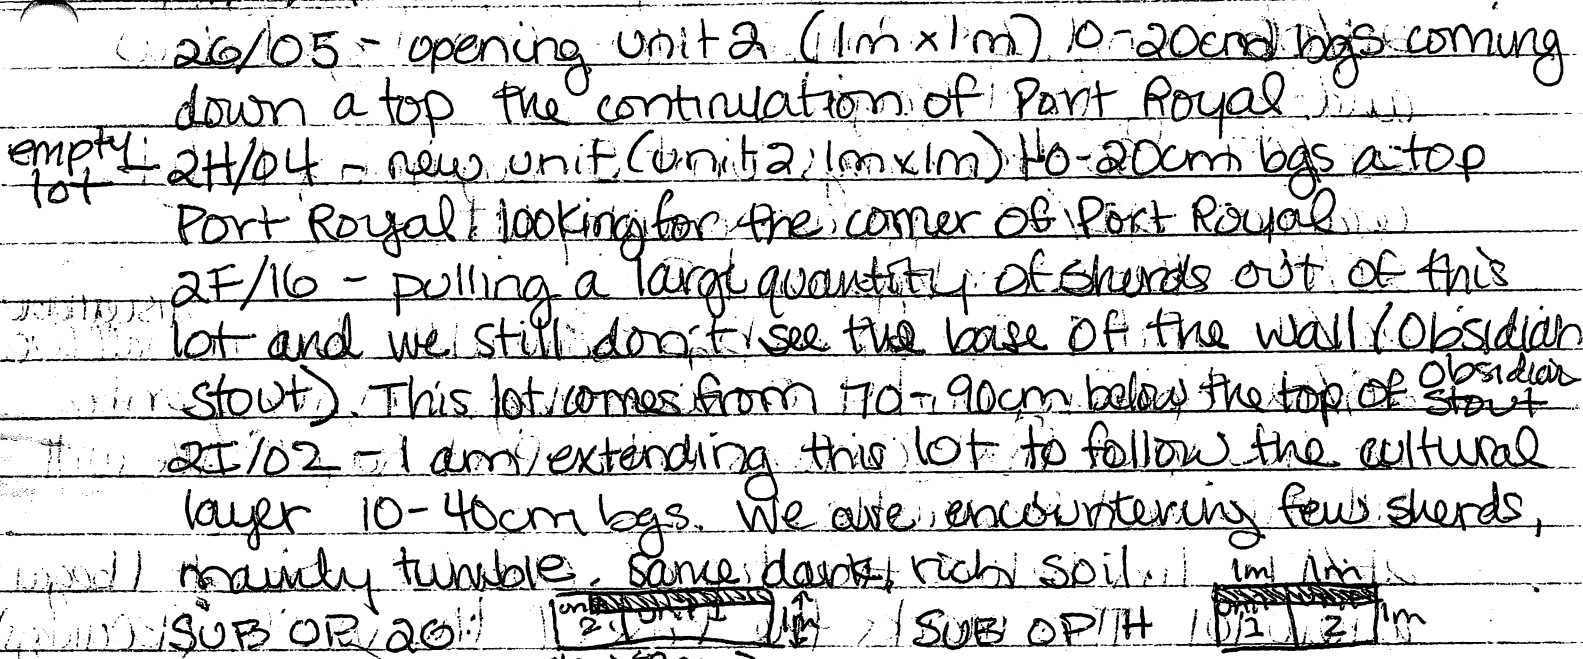 2G/05 - opening unit 2 (1m x 1m) 10-20cm bgs coming
down a top the continuation of Port Royal
empty lot - 2H/04 - new unit (unit 2; 1m x 1m) 10-20cm bgs a top
Port Royal looking for the corner of Port Royal
2F/16 - pulling a large quantity of sherds out of this
lot and we still don't see the base of the wall (Obsidian
stout). This lot comes from 70-90cm below the top of Obsidian Stout
2I/02 - I am extending this lot to follow the cultural
layer 10-40cm bgs. We are encountering few sherds,
mainly tumble. Same dark, rich soil.
1m 1m
SUB OP 2G unit 2 unit 1 1m SUB OP H unit 1 2 1m